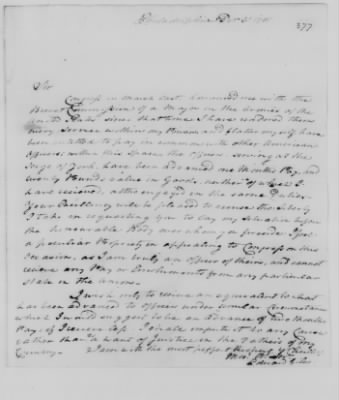 Philadelphia Dec 3
377
Sir
Congress in March last, honored me with the
Brevet Commission of a Major in the Armies of the
United States since that time I have rendered them
every service within my Power and flatter myself have
been entitled to pay in common with other American
Officers; within this space the Officers serving at the
Siege of York have been advanced one Months Pay, and
twenty Pounds value in Goods, neither of which I
have received, altho engaged in the same Duties.
Your Excellency will be pleased to excuse the liberty
I take in requesting you to lay my situation before
the honourable Body over whom you preside I feel
a peculiar Propriety in appealing to Congress on this
Occasion, as I am truly an officer of theirs, and cannot
receive any Pay or Emoluments from any particular
State in the Union.
I wish only to receive an equivalent to what
has been advanced to officers under similar Circumstances
which I would suggest to be an advance of two Months
Pay, if I receive less I shall impute it to any Cause
rather than a want of Justice in the Fathers of my
Country. I am with the most perfect Respect